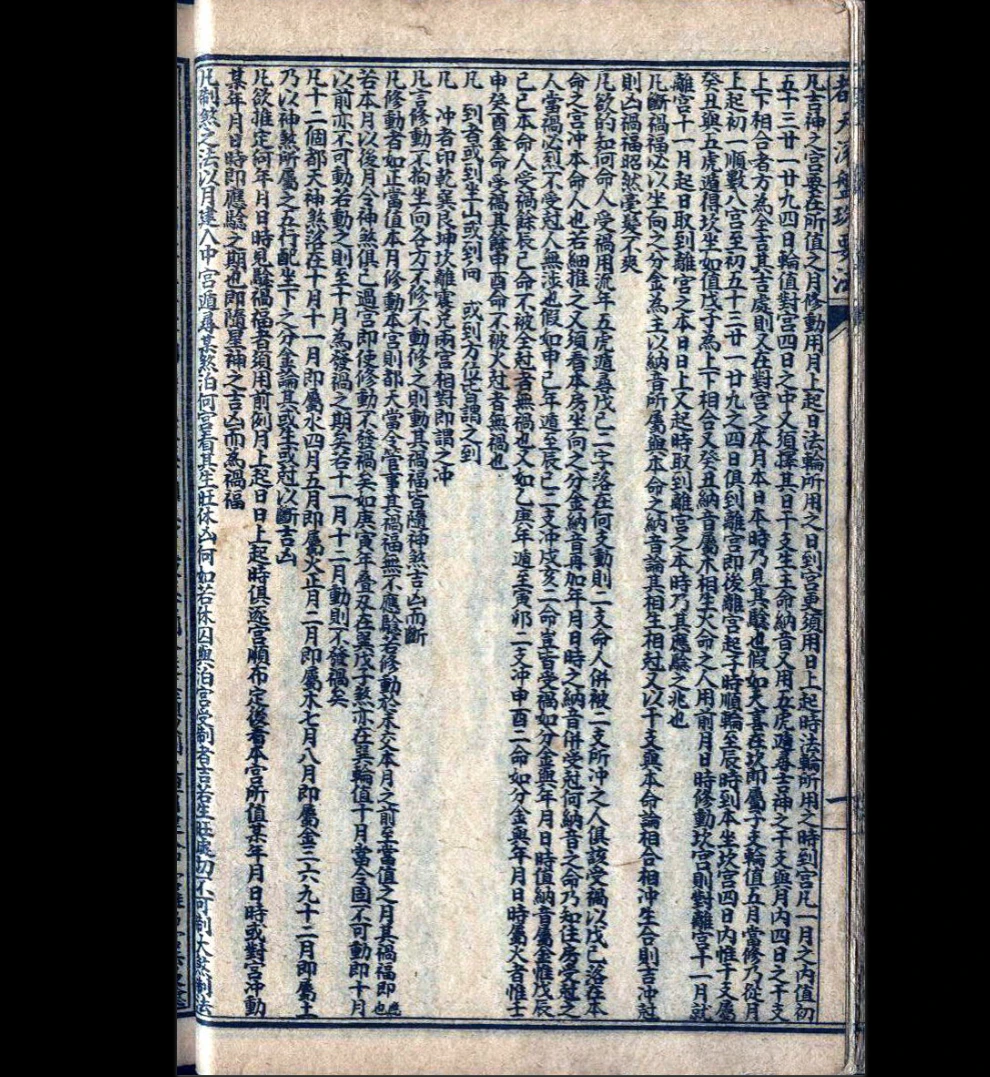 都天流盤珠要法
凡吉神之宮要在所值之月修動用月上起日法輪所用之日到宮更須用日上起時法輪所用之時到宮凡一月之內值初
五十三廿一廿九四日輪值對宮四日之中又須擇其日干支生主命納音又用五虎遁尋吉神之干支與月內四日之干支
上下相合者方為全吉其吉處則又在對宮之本月本日本時乃見其驗也假如天喜在坎即屬子支輪值五月當修乃從月
上起初一順數八宮至初五十三廿一廿九之四日俱到離宮即後離宮起子時順輪至辰時到本坐坎宮四日內惟干支屬
癸丑與五虎遁得坎坐如值戊子為上下相合又癸丑納音屬木相生火命之人用前月日時修動坎宮則對離宮十一月就
離宮十一月起日取到離宮之本日日上又起時取到離宮之本時乃其應驗之兆也
凡斷禍福必以坐向之分金為主以納音所屬與本命之納音論其相生相尅又以干支與本命論相合相冲生合則吉冲尅
則凶禍福昭然毫髮不爽
凡欲的知何命人受禍用流年五虎遁尋戊己二字落在何支動則二支命人併被二支所冲之人俱該受禍以戊己落在本
命之宮冲本命人也若細推之又須看本房坐向之分金納音再加年月日時之納音併受尅何納音之命乃知住房受尅之
人當禍必烈不受尅人無涉也假如甲己年遁至辰巳二支冲戌亥二命豈皆受禍如分金與年月日時值納音屬金惟戊辰
己巳木命人受禍餘辰巳命不被金尅者無禍也又如乙庚年遁至寅卯二支冲申酉二命如分金與年月日時屬火者惟壬
申癸酉金命受禍其餘申酉命不被火尅者無禍也
凡 到者或到坐山或到向 或到方位皆謂之到
凡 冲者即乾巽艮坤坎離震兌兩宮相對即謂之冲
凡言修動不拘坐向各方不修不動修之則動其禍福皆隨神煞吉凶而斷
凡修動者如正當值本月修動本宮則都天當令管事其禍福無不應驗若修動於未交本月之前至當值之月其禍福即應也
若本月以後月令神煞俱已過宮即使修動不發禍矣如庚寅年叠刃在巽戊子煞亦在巽輪值十月當令固不可動即十月
以前亦不可動若動之則至十月為發禍之期矣若十一月十二月動則不發禍矣
凡十二個都天神煞落在十月十一月即屬水四月五月即屬火正月二月即屬木七月八月即屬金三六九十二月即屬土
乃以神煞所屬之五行配坐下之分金論其或生或尅以斷吉凶
凡欲推定何年月日時見驗禍福者須用前例月上起日日上起時俱逐宮順布定後看本宮所值某年月日時或對宮冲動
某年月日時即應驗之期也即隨星神之吉凶而為禍福
凡制煞之法以月建入中宮遁尋某煞泊何宮看其生旺休囚何如若休囚與泊宮受制者吉若生旺處切不可制大煞制法